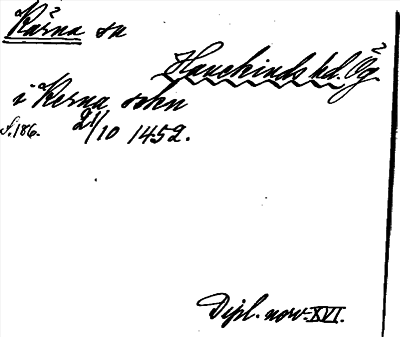 Kärna sn
Hanekinds hd. Ög.
i Kerna sokn
S. 186. 21/10 1452.
Dipl. norv. XVI.